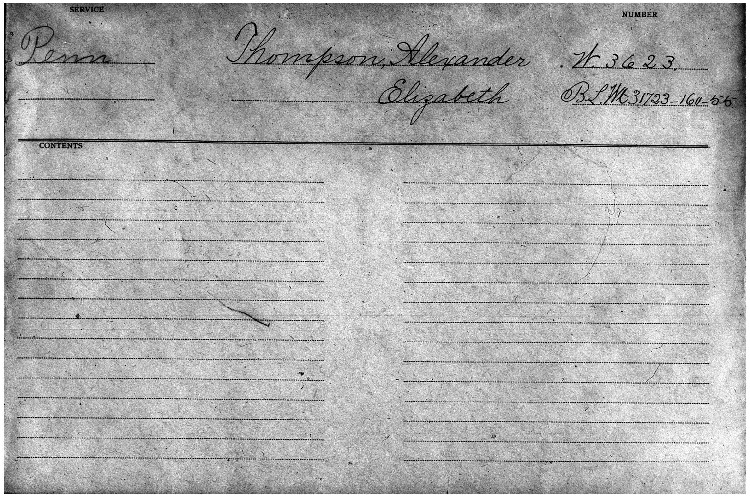 SERVICE
NUMBER
Penn Thompson, Alexander W 3623
Elizabeth B.L.Wt 31723-160-55
CONTENTS